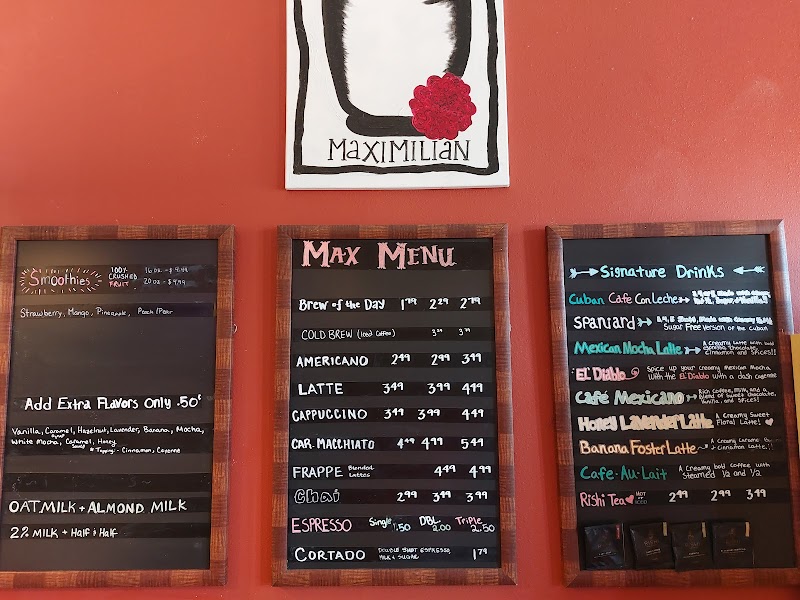 MAXIMILIAN
Smoothies
100% CRUSHED FRUIT
16 oz. - $4.49
20 oz. - $4.99
Strawberry, Mango, Pineapple, Peach/Pear
Add Extra Flavors Only .50¢
Vanilla, Caramel, Hazelnut, Lavender, Banana, Mocha,
White Mocha, Caramel, Honey
* Topping - Cinnamon, Cayenne
OATMILK + ALMOND MILK
2% MILK + Half & Half
MAX MENU
Brew of the Day 1.99 2.29 2.79
COLD BREW (Iced Coffee)
AMERICANO 2.49 2.99 3.49
LATTE 3.49 3.99 4.49
CAPPUCCINO 3.49 3.99 4.49
CAR. MACCHIATO 4.49 4.99 5.49
FRAPPE Blended Lattes 4.49 4.99
Chai 2.99 3.49 3.99
ESPRESSO Single 1.50 DBL 2.00 Triple 2.50
CORTADO DOUBLE SHOT ESPRESSO, MILK & SUGAR 1.79
Signature Drinks
Cuban Cafe Con Leche
SPANIARD
Sugar Free Version of the Cuban
Mexican Mocha Latte A Creamy Latte with bold espresso, chocolate, cinnamon and SPICES!!
EL Diablo Spice up your creamy Mexican Mocha
with the EL Diablo with a dash cayenne
Café Mexicano Rich Coffee, Milk, and a blend of sweet chocolate, Vanilla, and Spices!!
Honey Lavender Latte A Creamy Sweet Floral Latte!
Banana Foster Latte A Creamy Caramel
Cinnamon Latte
Cafe-Au-Lait A Creamy bold coffee with Steamed 1/2 and 1/2
Rishi Tea HOT or ICED 2.49 2.99 3.49